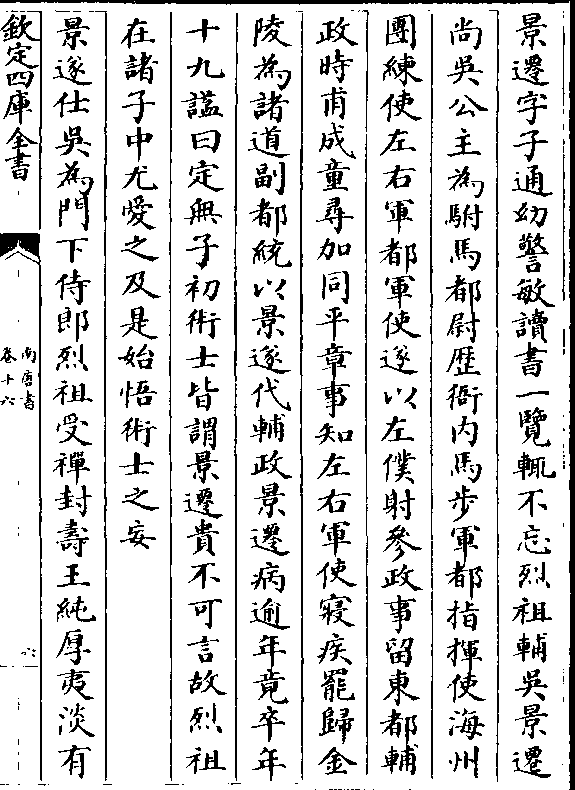 景遷字子通幼警敏讀書一覽輒不忘烈祖輔吳景遷
尚吳公主為駙馬都尉歴衙内馬步軍都指揮使海州
團練使左右軍都軍使遂以左僕射參政事留東都輔
政時甫成童尋加同平章事知左右軍使寢疾罷歸金
陵為諸道副都統以景遂代輔政景遷病逾年竟卒年
十九諡曰定無子初術士皆謂景遷貴不可言故烈祖
在諸子中尤愛之及是始悟術士之妄
景遂仕吳為門下侍郎烈祖受禪封壽王純厚夷淡有
欽定四庫全書
南唐書
卷十六
六